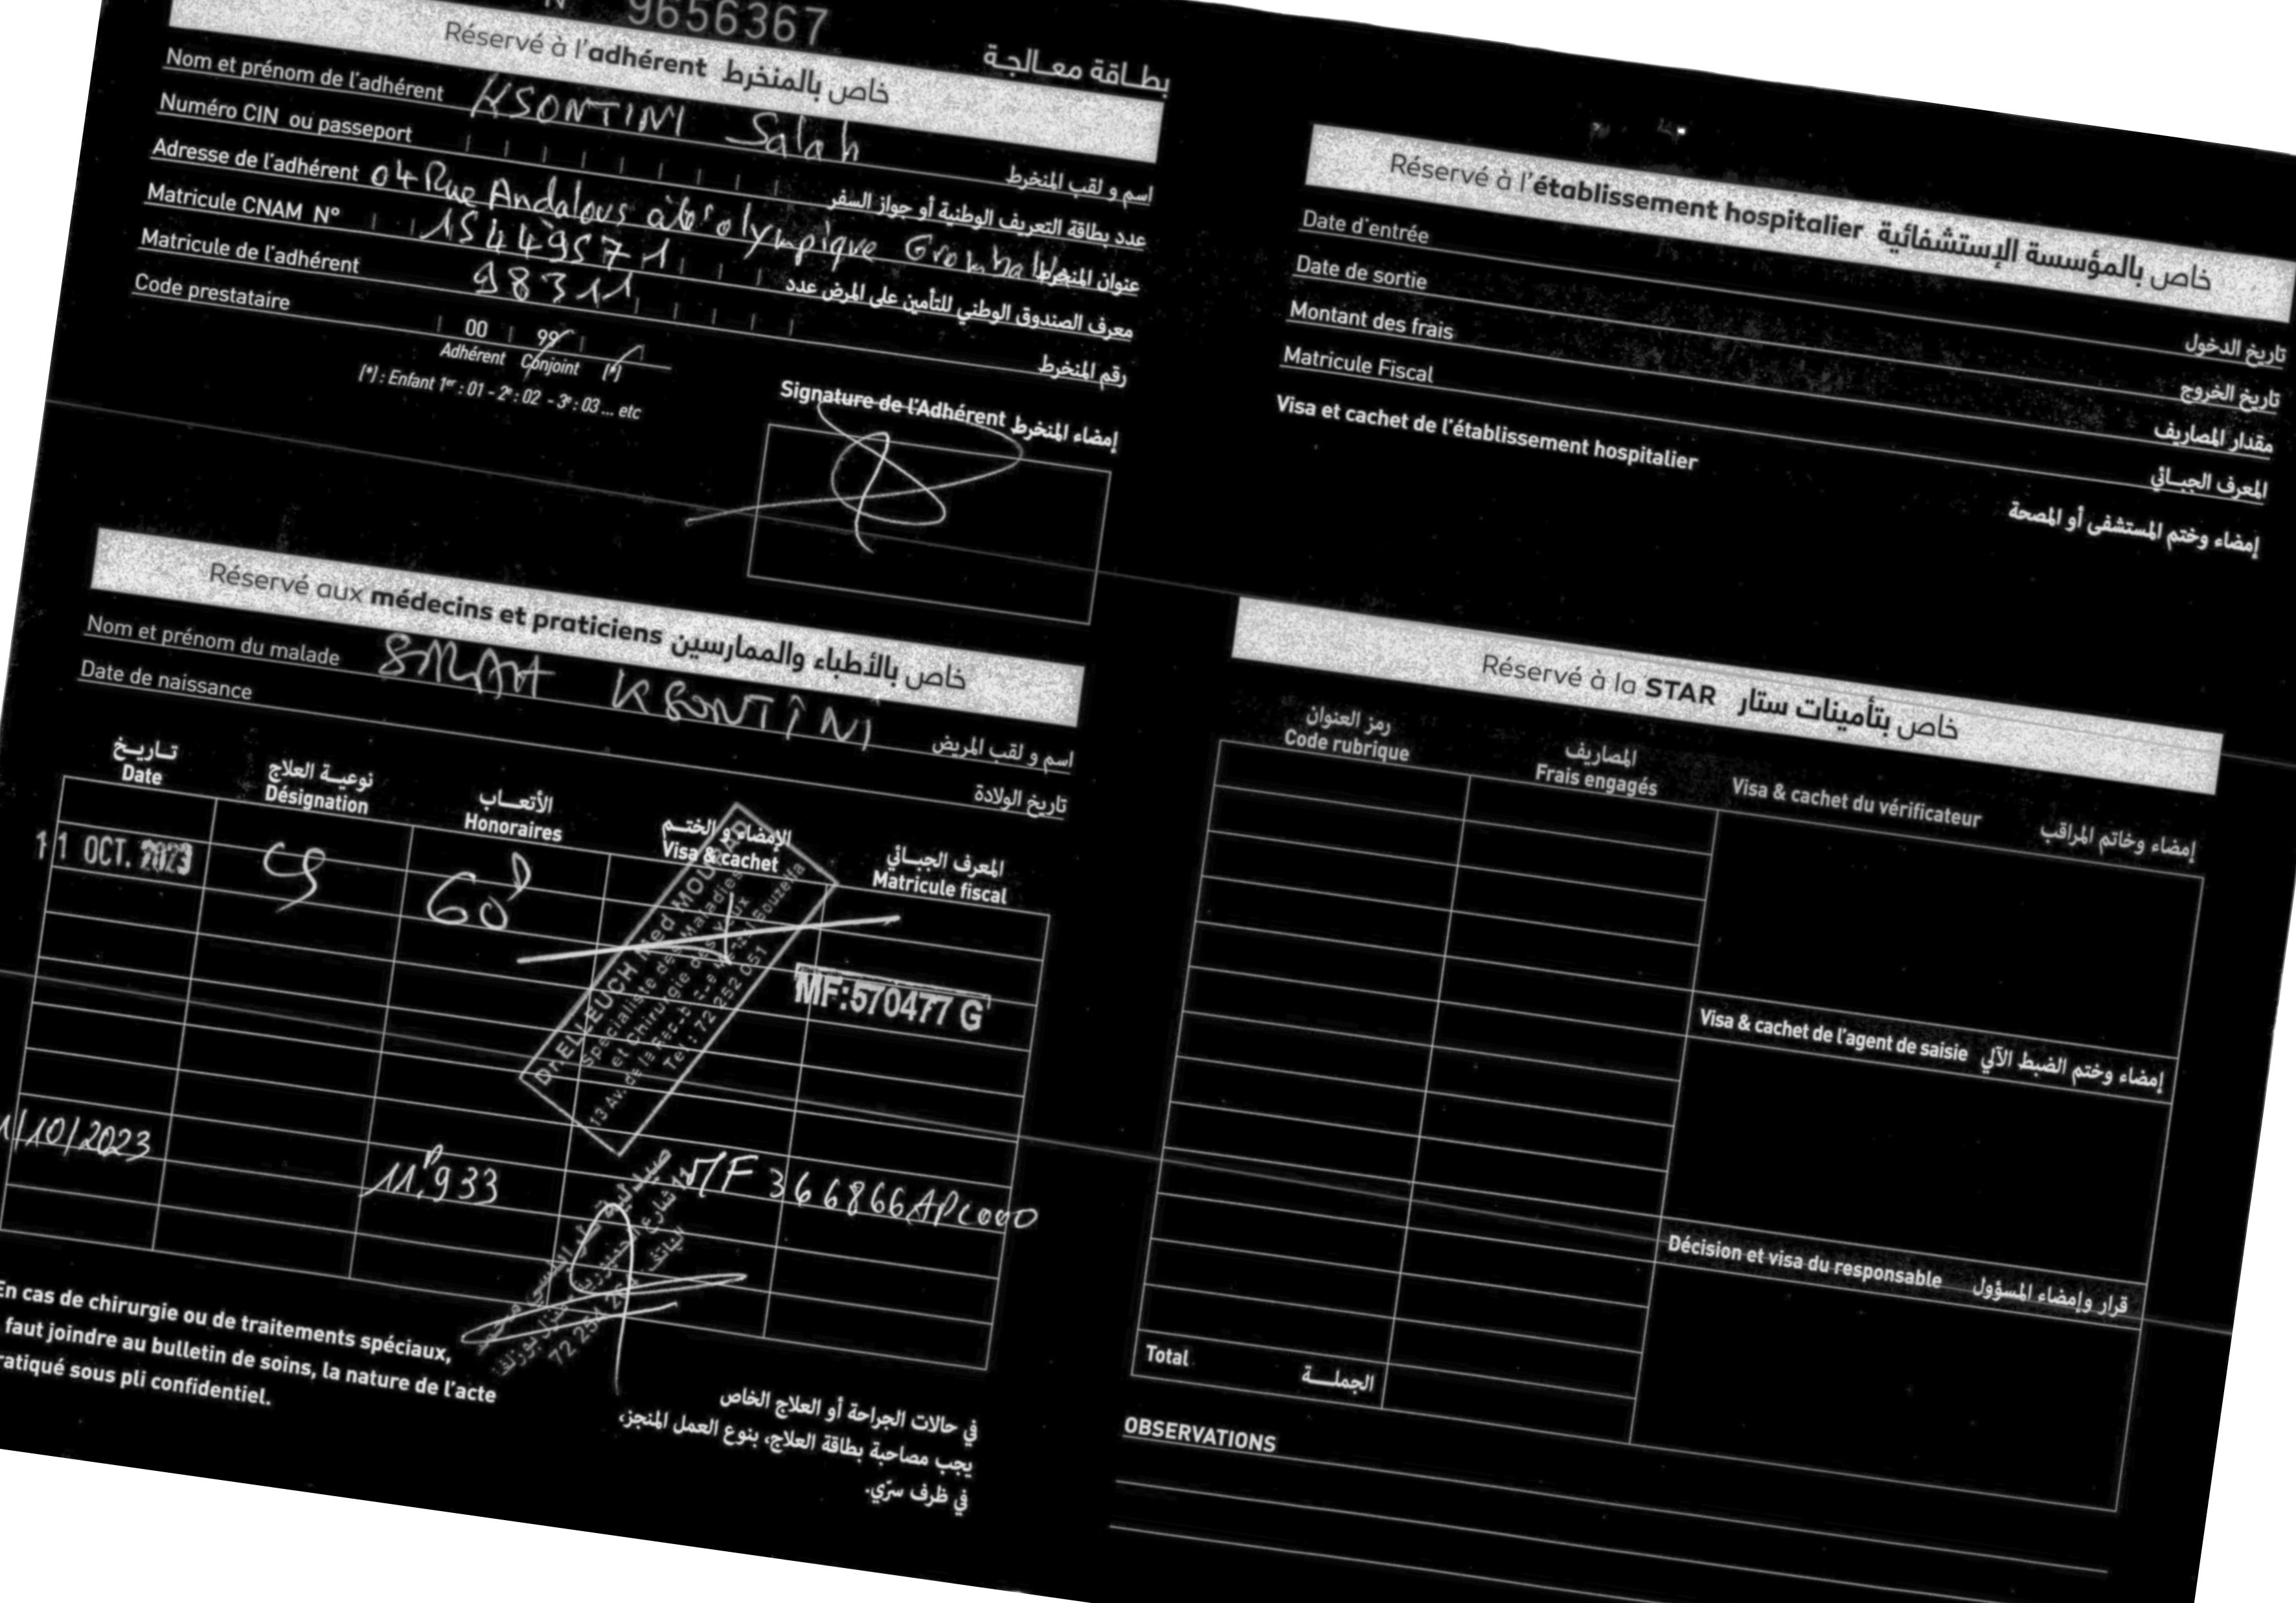 N° 9656367
بطاقة معالجة
Réservé à l'adhérent خاص بالمنخرط
Nom et prénom de l'adhérent KSONTINI Salah اسم و لقب المنخرط
Numéro CIN ou passeport عدد بطاقة التعريف الوطنية أو جواز السفر
Adresse de l'adhérent 04 Rue Andalous olympique عنوان المنخرط
Matricule CNAM N° 15449571 معرف الصندوق الوطني للتأمين على المرض عدد
Matricule de l'adhérent 98311 رقم المنخرط
Code prestataire 00 99
Adhérent Conjoint (*)
(*) : Enfant 1er : 01 - 2e : 02 - 3e : 03 ... etc
Signature de l'Adhérent إمضاء المنخرط
Réservé aux médecins et praticiens خاص بالأطباء والممارسين
Nom et prénom du malade SALAH KSONTINI اسم و لقب المريض
Date de naissance تاريخ الولادة
تاريخ نوعية العلاج الأتعاب الإمضاء و الختم المعرف الجبائي
Date Désignation Honoraires Visa & cachet Matricule fiscal
11 OCT. 2023 CS 60D
Dr ELLEUCH Med
Spécialiste des Maladies
et Chirurgie des Yeux
13 Av. de la Bouzelfa
Tel : 72 252 051
MF:570477 G
/10/2023 11D,933 M/F 366866APC000
صيدلية
72 254
En cas de chirurgie ou de traitements spéciaux,
faut joindre au bulletin de soins, la nature de l'acte
ratiqué sous pli confidentiel.
في حالات الجراحة أو العلاج الخاص
يجب مصاحبة بطاقة العلاج، بنوع العمل المنجز،
في ظرف سرّي.
Réservé à l'établissement hospitalier خاص بالمؤسسة الإستشفائية
Date d'entrée تاريخ الدخول
Date de sortie تاريخ الخروج
Montant des frais مقدار المصاريف
Matricule Fiscal المعرف الجبائي
Visa et cachet de l'établissement hospitalier إمضاء وختم المستشفى أو المصحة
Réservé à la STAR خاص بتأمينات ستار
رمز العنوان المصاريف
Code rubrique Frais engagés Visa & cachet du vérificateur إمضاء وخاتم المراقب
Visa & cachet de l'agent de saisie إمضاء وختم الضبط الآلي
Décision et visa du responsable قرار وإمضاء المسؤول
Total الجملة
OBSERVATIONS